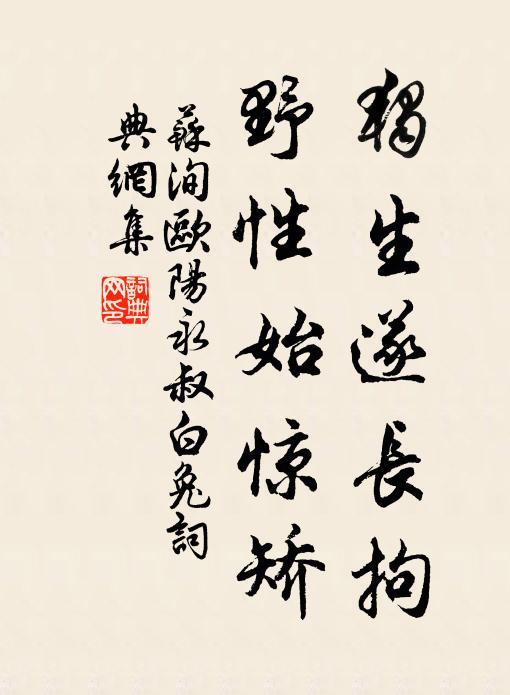 獨生遂長拘
野性始惊矫
蘇洵歐陽永叔白兔詞
典網集
詞典網印